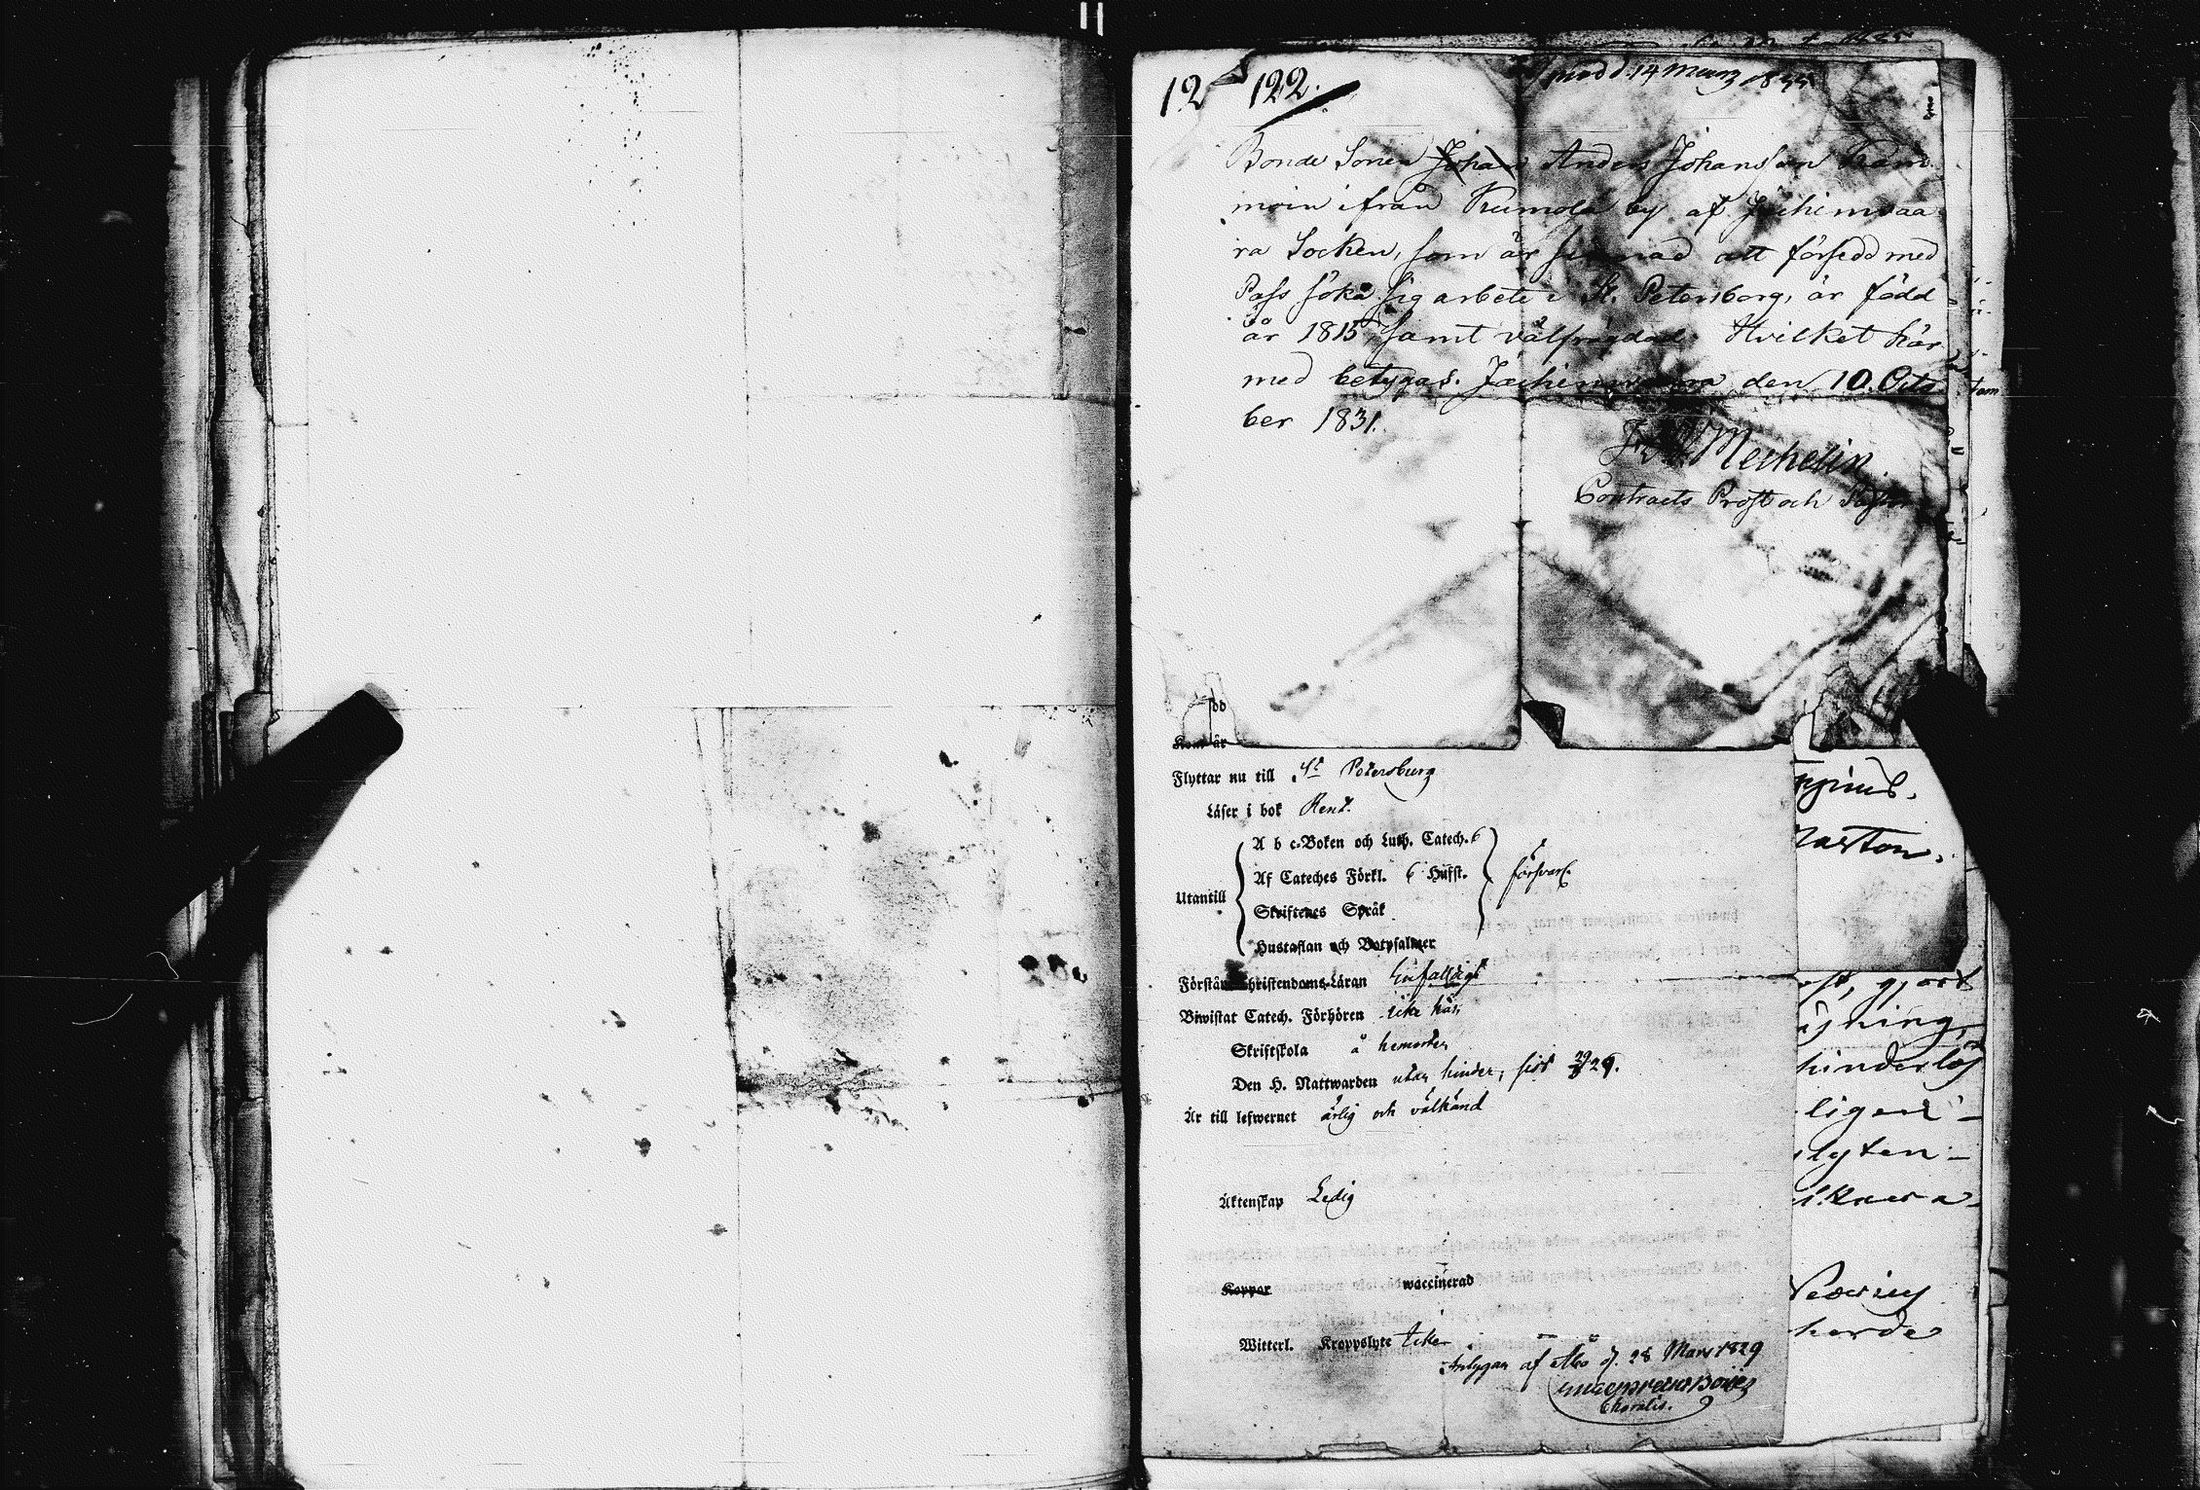 12 122.
med d. 14 Mars
Bonde Sonen Johan Anders Johansson Häm
moin ifrån Kumola by af Jächimvaa
ra Socken, som är sinnad att försedd med
Pass söka sig arbete i St. Petersborg, är född
år 1815, samt välfrägdad. Hvilket här
med betygas. Jächimvaara den 10. Octo
ber 1831.
Mechelin
Contracts Prost och Pastor
Kom år
Flyttar nu till St Petersburg
Läser i bok Rent.
A b c-Boken och Luth. Catech. 6
Af Cateches Förkl. 6 Hufst. försvarl.
Utantill
Skriftenes Språk
Hustaflan och Botpsalmer
Förstår Christendoms-Läran Enfaldigt
Biwistat Catech. Förhören icke här
Skriftskola å hemorten
Den H. Nattwarden utan hinder, sist 29.
Är till lefwernet ärlig och välkänd
Äktenskap Ledig
Koppor waccinerad
Witterl. Kroppslyte Icke
Betygar af Åbo d. 28 Mars 1829
hinderlös